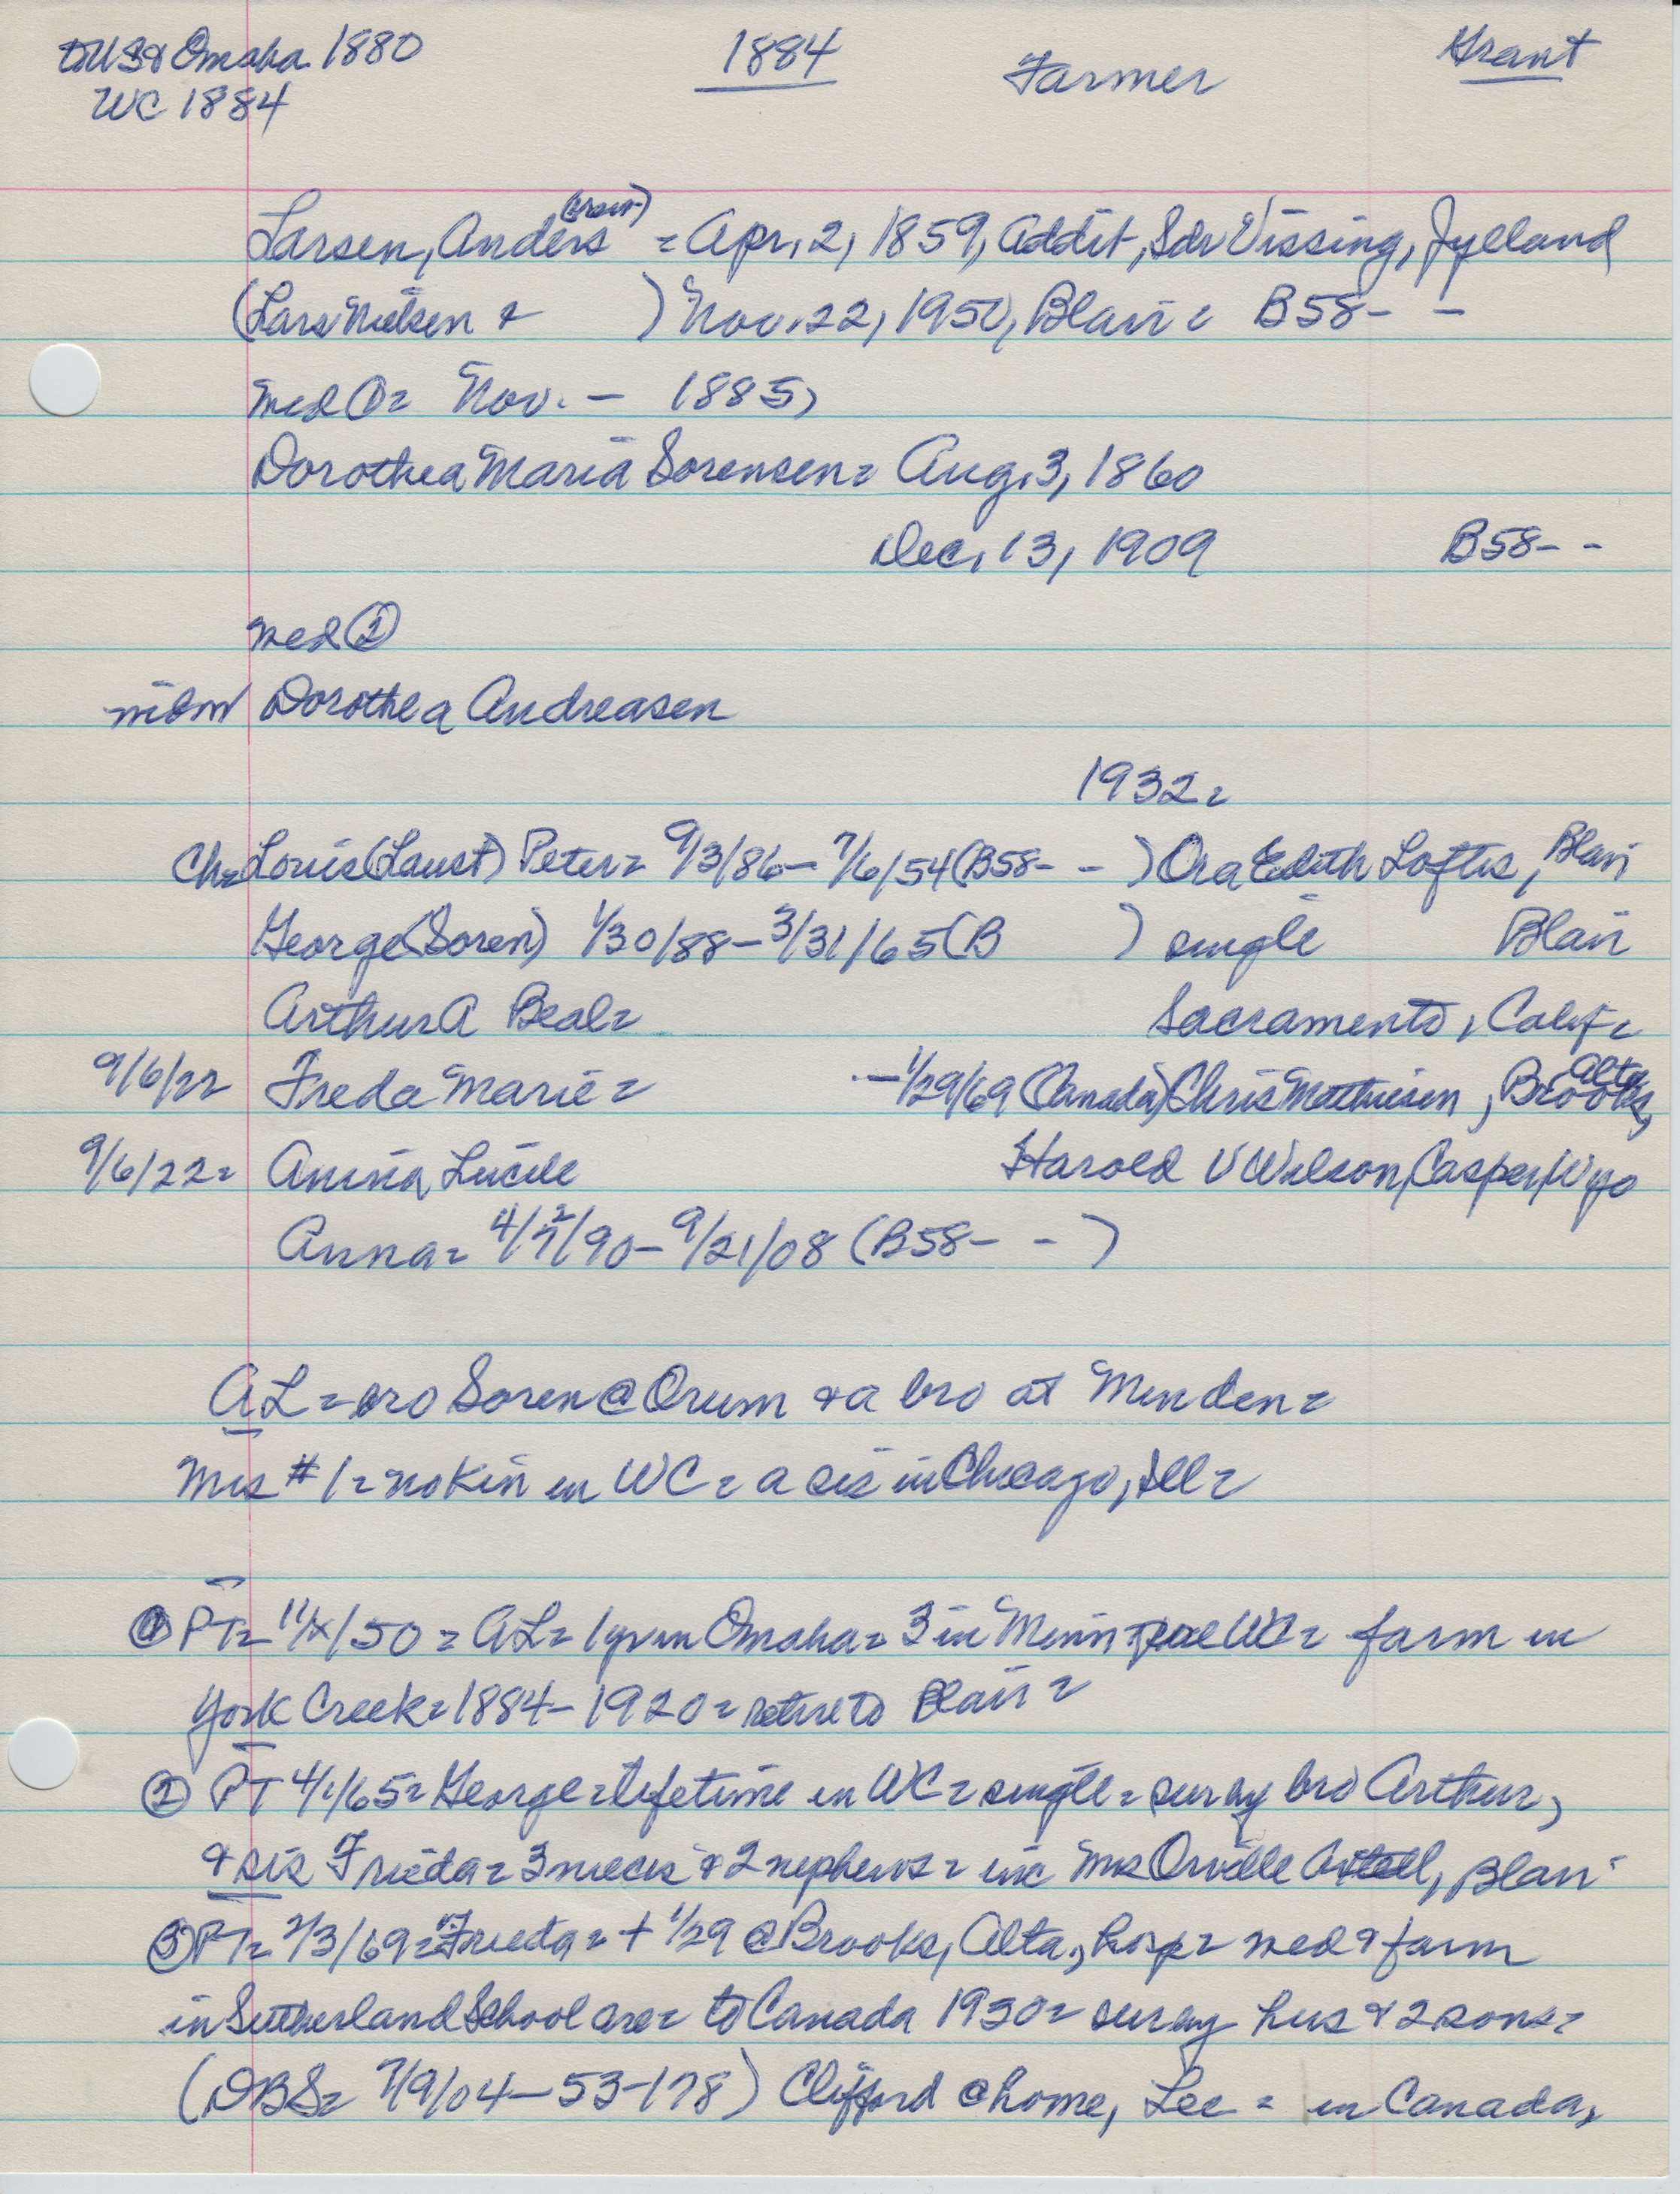 Omaha 1880
1884
Farmer
Grant
WC 1884
Larsen, Anders = Apr. 2, 1859, Addit, Sdr Vissing, Jylland
(Lars Nielsen & ) Nov. 22, 1950, Blair = B58- -
med ①= Nov. - 1885,
Dorothea Maria Sorensen= Aug. 3, 1860
Dec. 13, 1909 B58- -
med ②
Dorothea Andreasen
1932=
Ch= Louis (Laust) Peter= 9/3/86- 7/6/54 (B58- - ) Ora Edith Loftis, Blair
George (Soren) 1/30/88-3/31/65 (B ) single Blair
Arthur A Beal= Sacramento, Calif=
9/6/22 Freda Marie= -1/29/69 (Canada) Chris Mathiesen, Brooks, Alta
9/6/22= Anina Lucile Harold V Wilson, Casper, Wyo
Anna= 4/ /90-9/21/08 (B58- - )
AL= bro Soren @ Orum & a bro at Minden=
Mrs #1= no kin in WC= a sis in Chicago, Ill=
① PT= 11/x/50= AL= 1 yr in Omaha= 3 in Minn WC= farm in
York Creek= 1884-1920= retire to Blair=
② PT 4/1/65= George= lifetime in WC= single= surv by bro Arthur,
& sis Frieda= 3 nieces & 2 nephews= inc Mrs Orville , Blair
③ PT= 2/3/69= Frieda= + 1/29 @ Brooks, Alta, hosp= med & farm
in Sutherland School area= to Canada 1930= surv by hus & 2 sons=
(DBS= 7/9/04-53-178) Clifford @ home, Lee = in Canada,